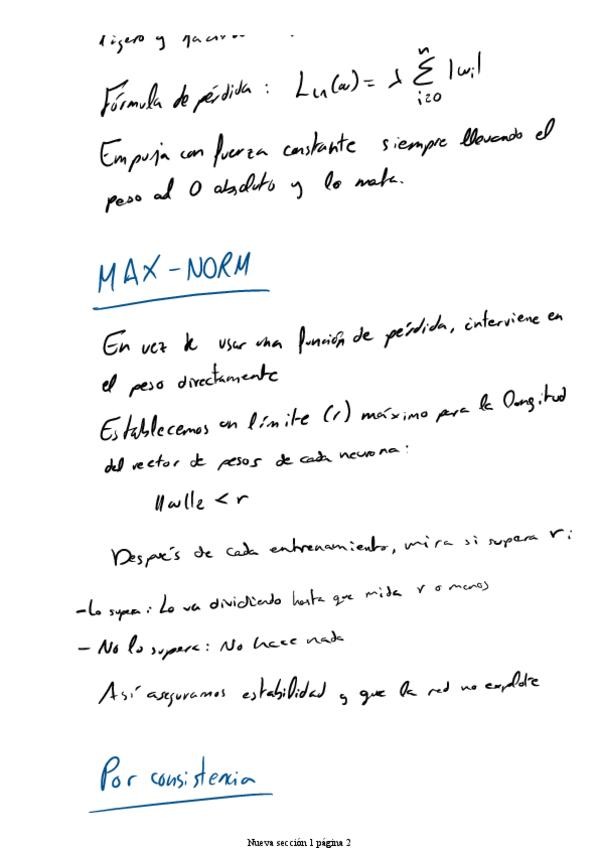 ligero y
Fórmula de pérdida : L_L1(w) = λ Σ_{i=0}^{n} |w_i|
Empuja con fuerza constante siempre llevando el
peso al 0 absoluto y lo mata.
MAX-NORM
En vez de usar una función de pérdida, interviene en
el peso directamente
Establecemos un límite (r) máximo para la longitud
del vector de pesos de cada neurona:
||w||2 < r
Después de cada entrenamiento, mira si supera r:
-Lo supera: Lo va dividiendo hasta que mida r o menos
- No lo supera: No hace nada
Así aseguramos estabilidad y que la red no explote
Por consistencia
Nueva sección 1 página 2